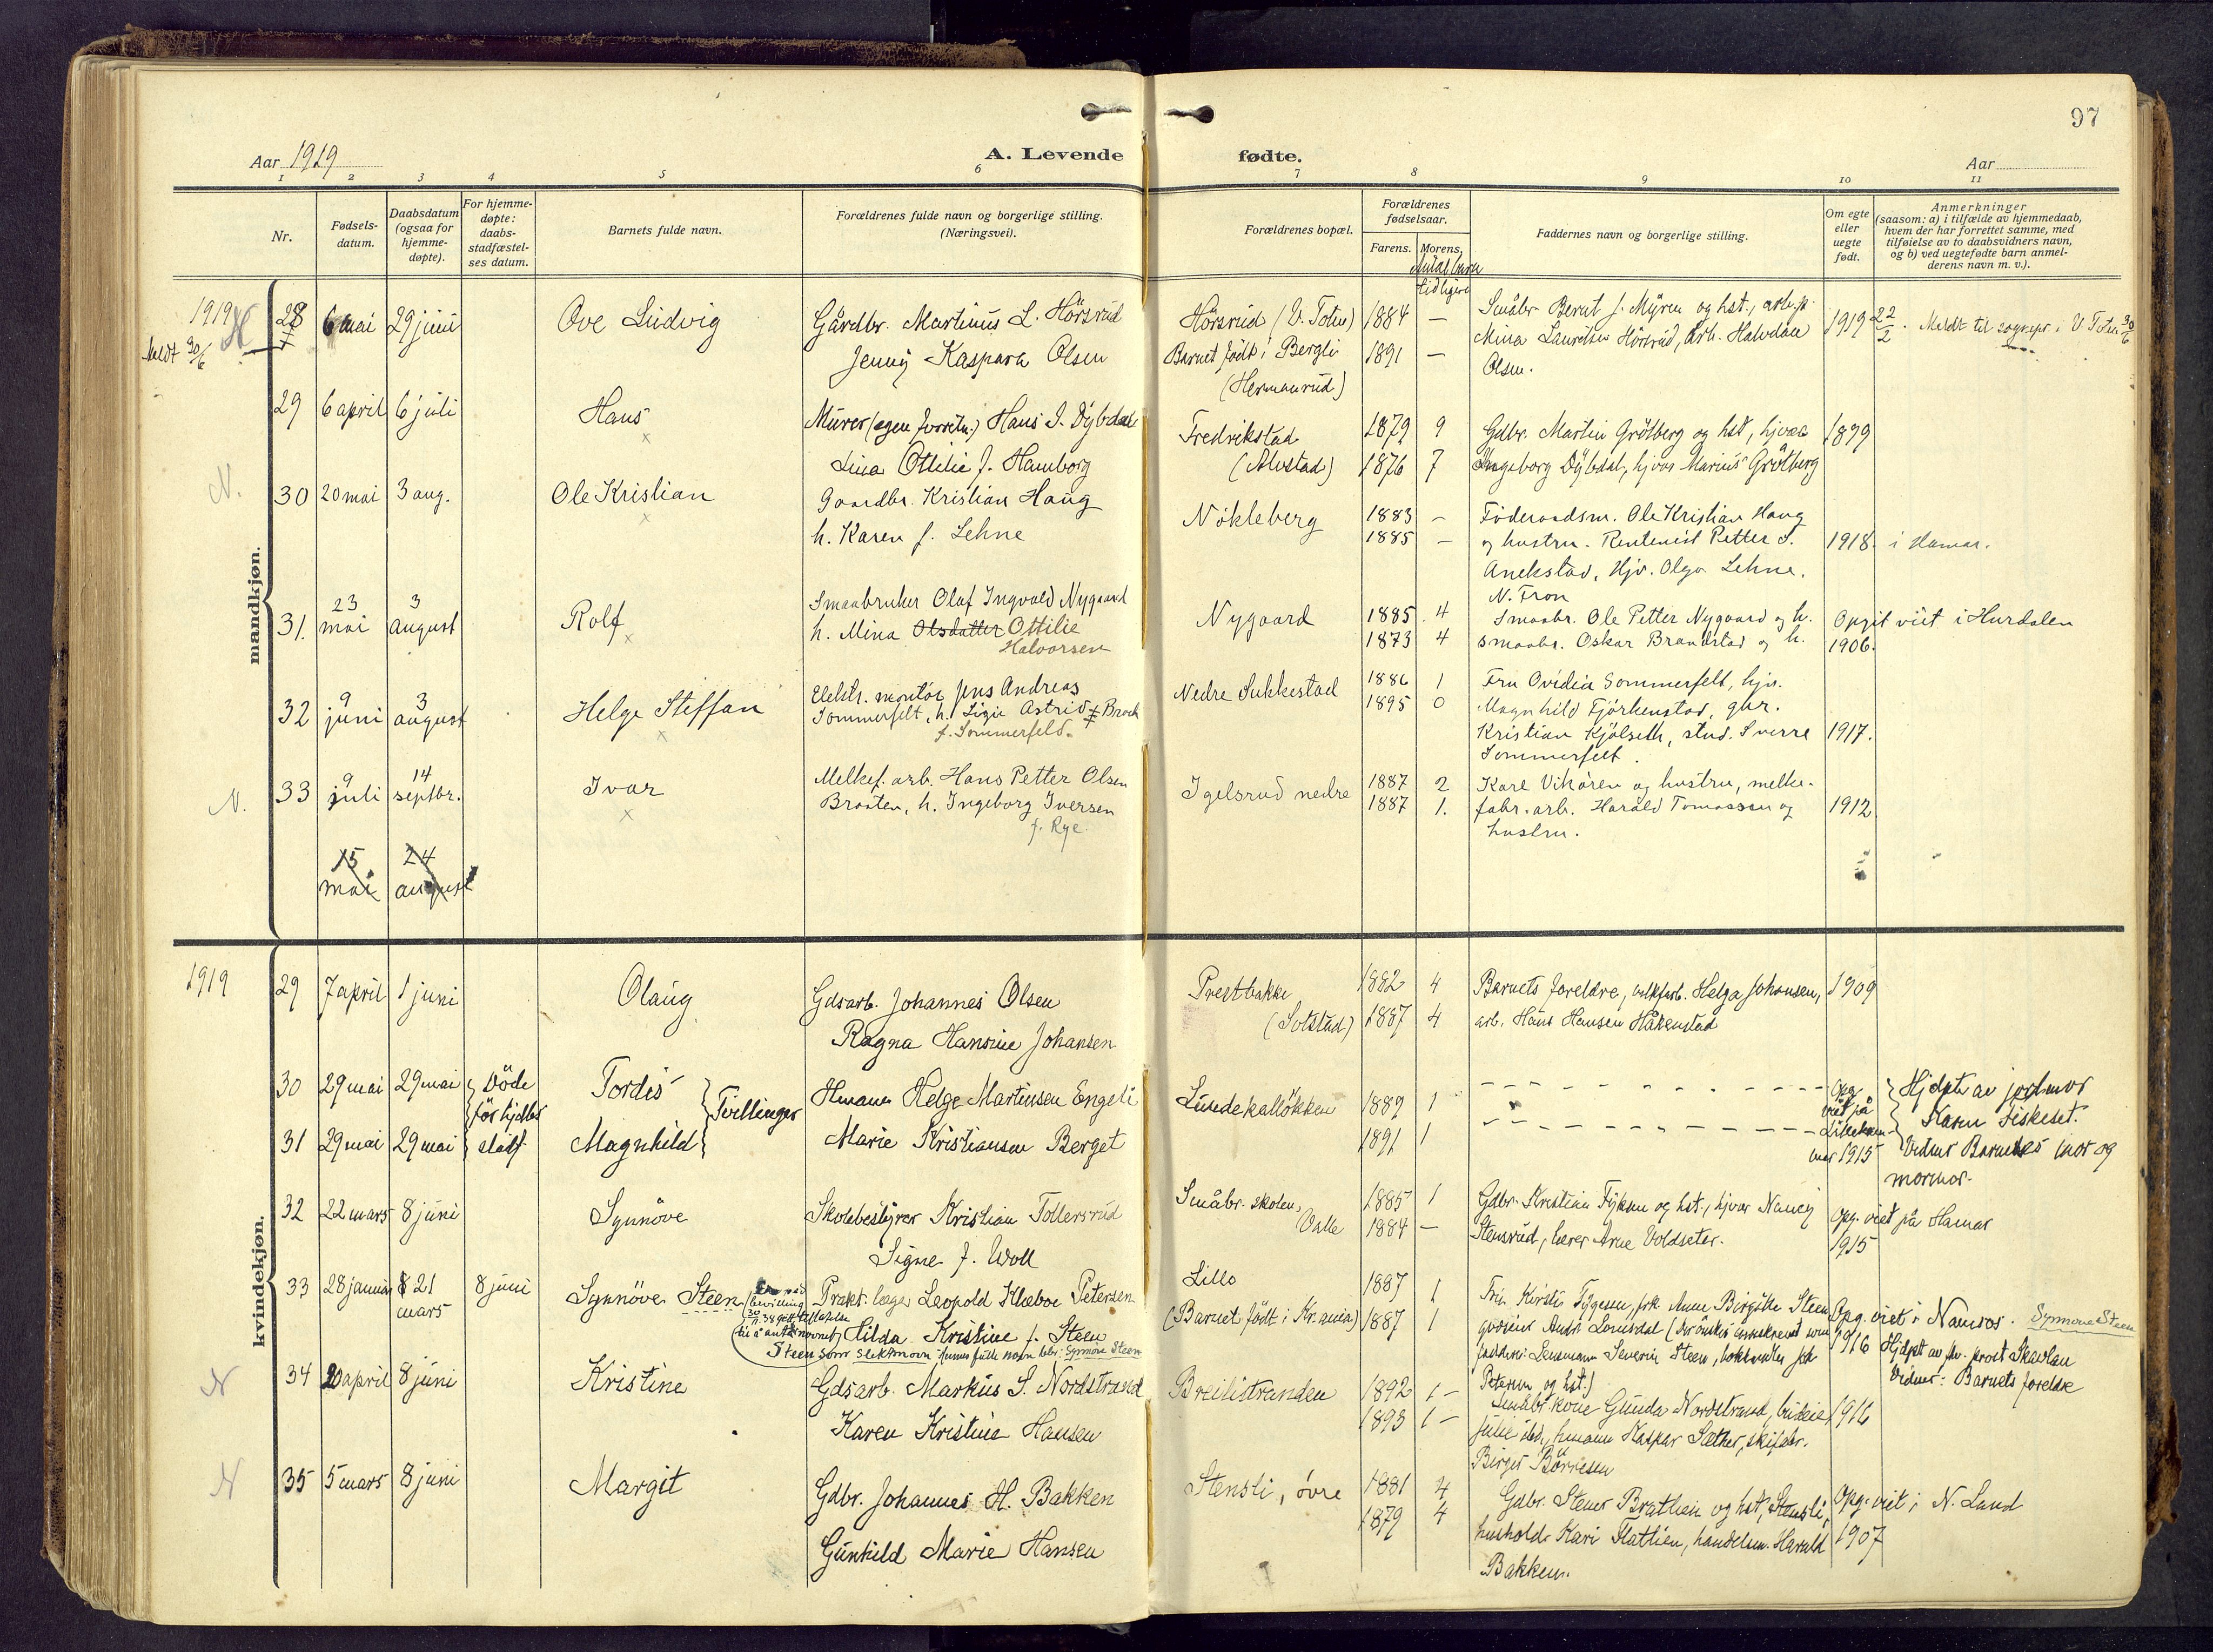 97
Aar 1919
A. Levende fødte.
Aar
1 2 3 4 5 6 7 8 9 10 11
Nr.
Fødsels-
datum.
Daabsdatum
(ogsaa for
hjemme-
døpte).
For hjemme-
døpte:
daabs-
stadfæstel-
ses datum.
Barnets fulde navn.
Forældrenes fulde navn og borgerlige stilling.
(Næringsvei).
Forældrenes bopæl.
Forældrenes
fødselsaar.
Farens. Morens.
Faddernes navn og borgerlige stilling.
Om egte
eller
uegte
født.
Anmerkninger
(saasom: a) i tilfælde av hjemmedaab,
hvem der har forrettet samme, med
tilføielse av to daabsvidners navn,
og b) ved uegtefødte barn anmel-
derens navn m. v.).
Antal barn
tidligere
mandkjøn.
1919
Meldt 30/6
28 6 mai 29 juni
Ove Ludvig
Gårdbr. Martinus L. Hörsrud
Jenny Kaspara Olsen
Hörsrud (V. Toten)
Barnet født i Bergli
(Hermanrud)
1884 —
1891 —
Småbr. Bernt f. Myren og hst., arb.p.
Mina Lauritsen Hörsrud, Arb. Halvdan
Olsen.
1919 22/2. Meldt til sognepr. i V. Toten 30/6
29 6 april 6 juli
Hans
Murer (egen forretn.) Hans J. Dybdal
Lina Ottilie f. Hamborg
Fredrikstad
(Alvstad)
1879 9
1876 7
Gdbr. Martin Grötberg og hst, hjvær
Ingeborg Dybdal, hjvær Marius Grötberg
1899
N.
30 20 mai 3 aug.
Ole Kristian
Gaardbr. Kristian Haug
h. Karen f. Lehne
Nökleberg
1883 —
1885 —
Föderaadsm. Ole Kristian Haug
og hustru. Rentenist Petter S.
Anekstad, Hjv. Olga Lehne.
N. Fron
1918. i Hamar.
31. 23 mai 3 august
Rolf
Smaabruker Olaf Ingvald Nygaard
h. Mina Olsdatter Ottilie
Halvorsen
Nygaard
1885. 4
1873 4
Smaabr. Ole Petter Nygaard og h.
smaabr. Oskar Brandstad og h.
Opgit viet i Hurdalen
1906.
32 9 juni 3 august
Helge Steffan
Elektr. montör Jens Andreas
Sommerfelt, h. Ligie Astrid f. Brock
f. Sommerfeld.
Nedre Sukkestad
1886 1
1895 0
Fru Ovidia Sommerfelt, hjv.
Magnhild Fjörkenstad, gbr.
Kristian Kjölseth, stud. Sverre
Sommerfelt.
1917.
N. 33 9 juli 14 septbr.
Ivar
Melkef. arb. Hans Petter Olsen
Braaten, h. Ingeborg Iversen
f. Rye
Igelsrud nedre
1887 2
1887 1.
Karl Vikören og hustru, melke-
fabr. arb. Harald Tomassen og
hustru.
1912
15 mai 24 august
kvindekjøn.
1919
29 7 april 1 juni
Olaug
Gdsarb. Johannes Olsen
Ragna Hansine Johansen
Prestbakke
(Sotstad)
1882 4
1887 4
Barnets foreldre, Helga Johansen,
arb. Hans Hansen Håkenstad
1909
30 29 mai 29 mai
31 29 mai 29 mai
Döde
för hjdbs
stadf.
Tordis
Magnhild
Tvillinger
Hmann Helge Martinsen Engeli
Marie Kristiansen Berget
Lundekallökken
1889 1
1891 1
Opg
viet på
Lilleham-
mer 1915
Hjdpt av jordmor
Karen Fiskeset.
Vidner Barnets mor og
mormor.
32 22 mars 8 juni
Synnöve
Skolebestyrer Kristian Tollersrud
Signe f. Woll
Småbr. skolen,
Valle
1885 1
1884 —
Gdbr. Kristian Fyksen og hst., hjvær Nancy
Stensrud, lærer Arne Voldseter.
Opg. viet på Hamar
1915
33 28 januar 21 mars 8 juni
Synnöve Steen
bevilling
Steen som slektsnavn
Prakt. læge Leopold Klæboe Petersen
Hilda Kristine f. Steen
Lillo
(Barnet født i Kr.ania)
1887 1
1887 1
Frk. Kirsti Tygesen, frk. Anne Birgitte Steen
Lensmann Severin Steen,
Petersen og hst.)
Opg. viet i Namsos. Synnöve Steen
1916
Hjdpt av fhv. prost Skavlan
Vidner: Barnets foreldre
N 34 20 april 8 juni
Kristine
Gdsarb. Markus S. Nordstrand
Karen Kristine Hansen
Breilistranden
1892 1 —
1893 1 —
Småbr kone Gunda Nordstrand,
Julie ibd., hmann Kaspar Sæther, skifabr.
Birger Börresen
1916
N 35 5 mars 8 juni
Margit
Gdbr. Johannes H. Bakken
Gunhild Marie Hansen
Stensli, övre
1881 4
1879 4
Gdbr. Stener Brathein og hst, Stensli,
hushold. Kari Flatlien, handelsm. Harald
Bakken.
Opg. viet i N. Land
1907